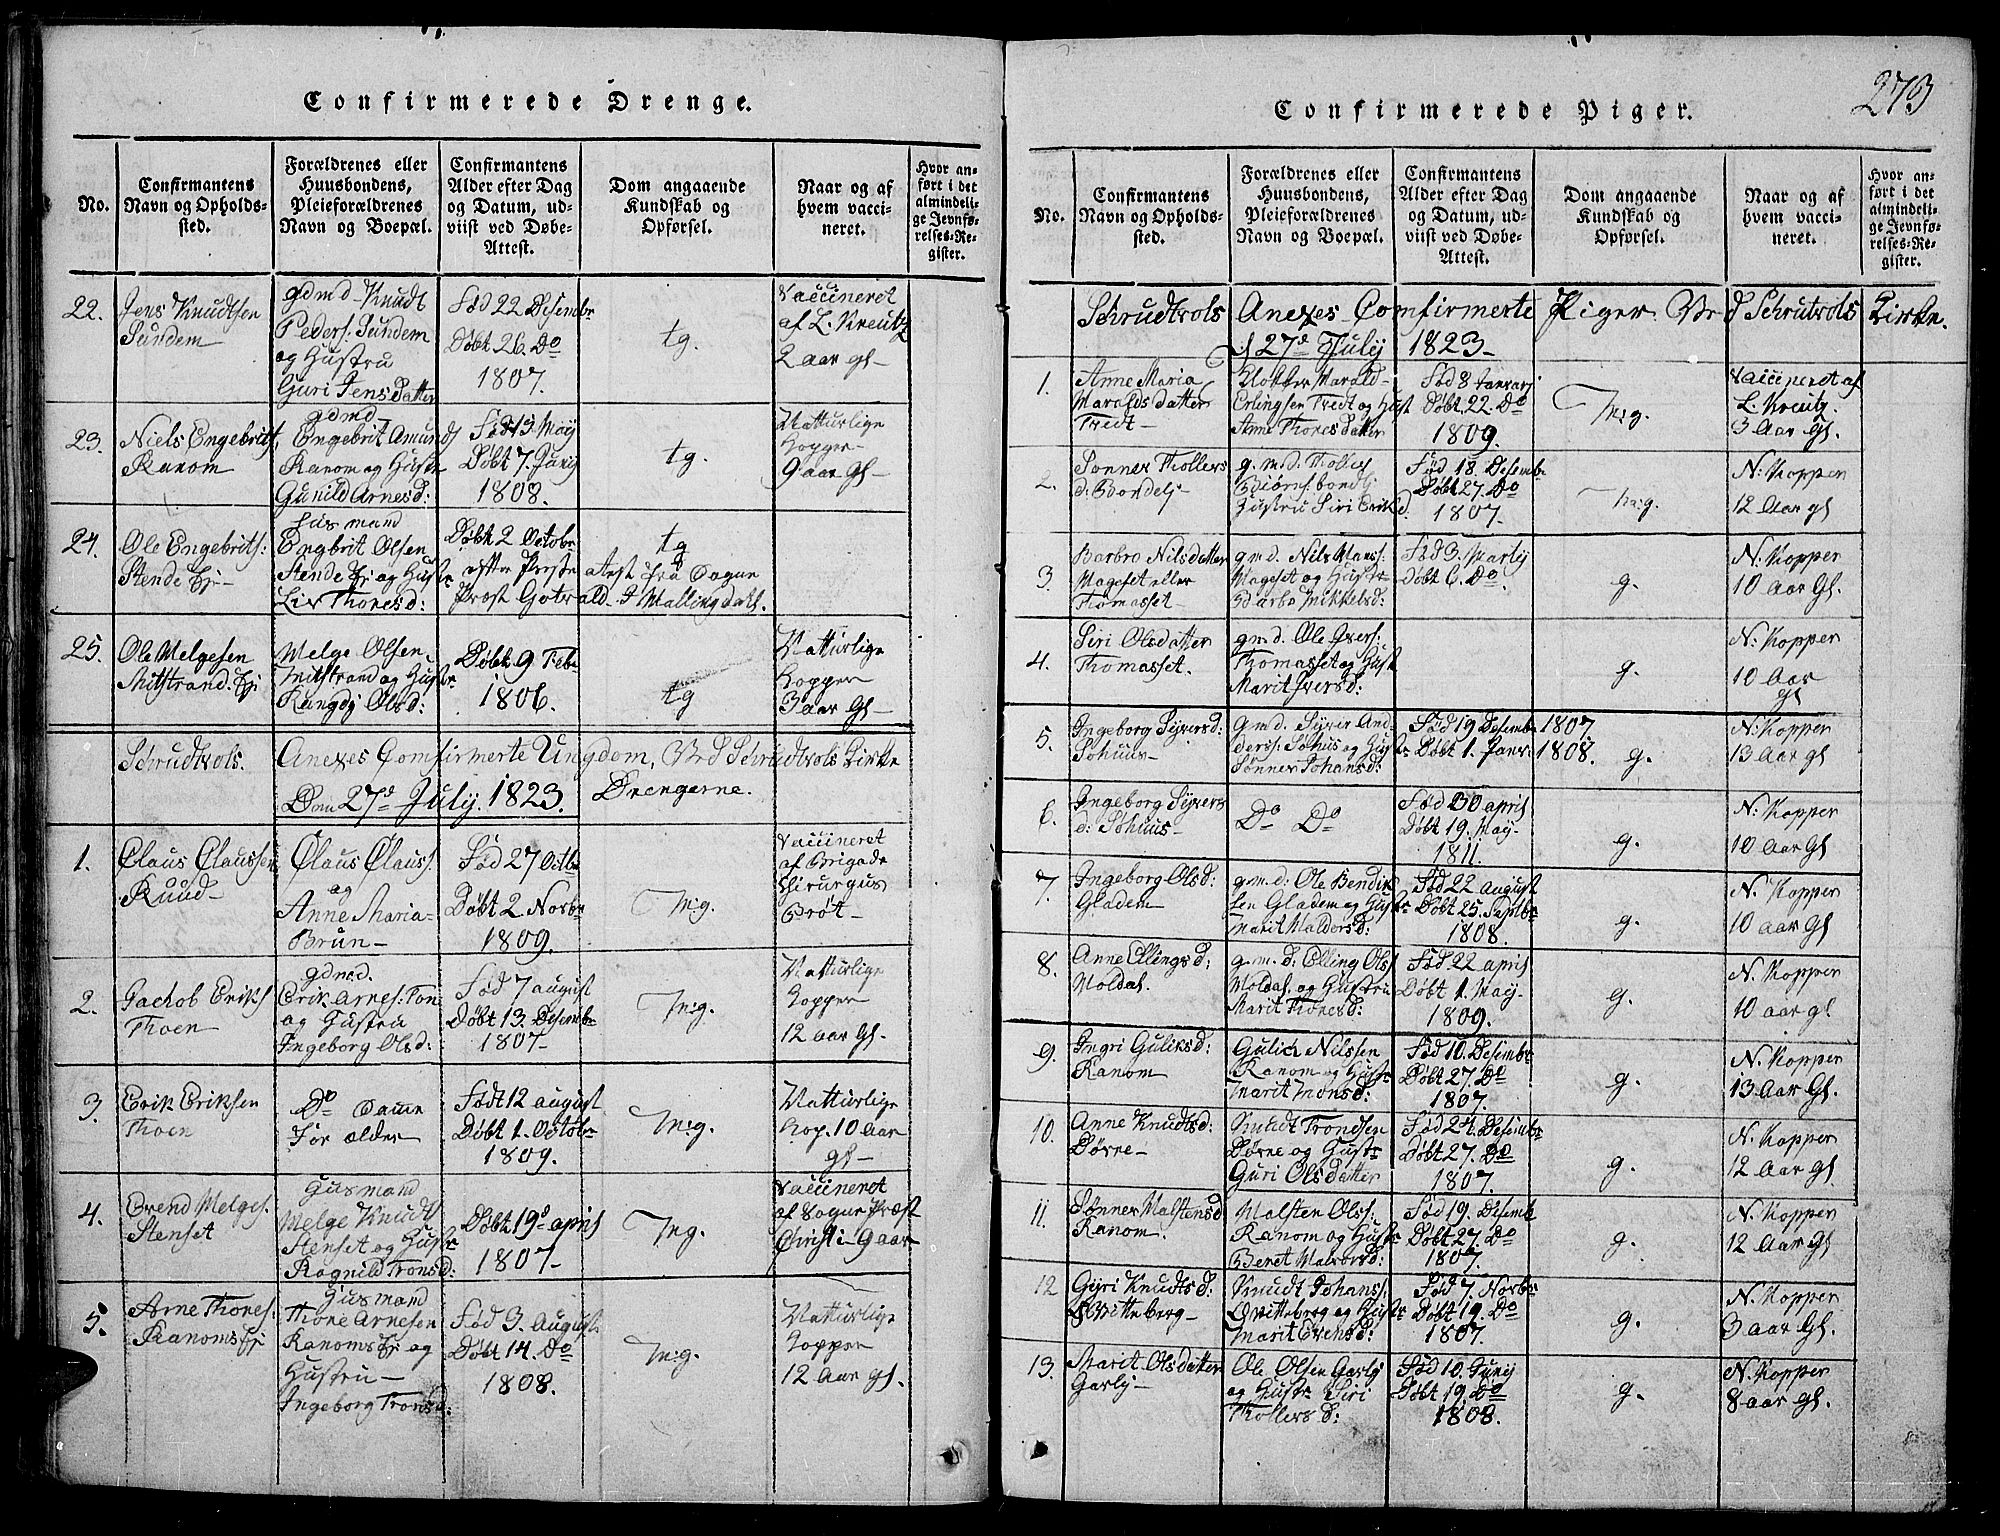 Confirmerede Drenge.
No.
Confirmantens
Navn og Opholds-
sted.
Forældrenes eller
Huusbondens,
Pleieforældrenes
Navn og Boepæl.
Confirmantens
Alder efter Dag
og Datum, ud-
viist ved Døbe-
Attest.
Dom angaaende
Kundskab og
Opførsel.
Naar og af
hvem vacci-
neret.
Hvor an-
ført i det
almindeli-
ge Jevnfø-
relses-Re-
gister.
22.
Jens Knudtsen
Sundem
gdmd Knudt
Peders: Sundem
og Hustru
Guri Jens Datter
Fød 22 Desembr
Døbt 26. Do
1807.
tg.
Vaccineret
af L. Kreutz
2 aar gl
23.
Niels Engebrits:
Ranom
gdmd
Engebrit Amunds
Ranom og Hustr
Gunild Arnesd:
Fød 13 Maij
Døbt 7. Junij
1808.
tg.
Natturlige
kopper
9 aar gl
24.
Ole Engebrits:
Stende Ej
Husmand
Engbrit Olsen
Stende Ej og Hustr
Liv Thoresd:
Døbt 2 Octobr
after Preste
Præst Gotvald
tg
atest fra Sogne
I Hallingdahl.
25.
Ole Helgesen
Mitstrand: Ej
Helge Olsen
Mitstrand og Hustr
Rangdi Olsd:
Døbt 9 Febr
1806.
tg
Natturlige
kopper
3 aar gl
Schrudtvols. Anexes Comfirmerte Ungdom, Ved Schrudtvols Kirke
Den 27de July. 1823. Drengerne.
1.
Claus Claussen
Ruud
Claus Clauss:
og
Anne Maria
Brun
Fød 27 Octbr
Døbt 2 Novbr
1809.
M:g.
Vaccineret
af Brigade
Chirurgus
Brøt
2.
Jachob Eriks
Thoen
gdmd.
Erik Arnes: Ton
og Hustru
Ingeborg Olsd:
Fød 7 august
Døbt 13. Desembr
1807
M:g.
Natturlige
kopper
12 aar gl.
3.
Erik Eriksen
Thoen
Do Samme
For ælder
Født 12 august
Døbt 1. Octobr
1809.
M:g.
Natturlige
kop. 10 Aar
gl
4.
Evend Helges.
Stenset
Husmand
Helge Knudts
Stenset og Hustr
Rognild Tronsd:
Døbt 19de april
1807
M:g.
Vaccineret
af Sogne Præst
Christi 9 aar
5.
Arne Thores:
Ranoms Ej
Husmand
Thore Arnesen
Ranoms Ej og
Hustru
Ingeborg Tronsd:
Fød 3. August
Døbt 14. Do
1808.
M:g.
Natturlige
kopper
12 Aar gl.
273
Confirmerede Piger.
No.
Confirmantens
Navn og Opholds-
sted.
Forældrenes eller
Huusbondens,
Pleieforældrenes
Navn og Boepæl.
Confirmantens
Alder efter Dag
og Datum, ud-
viist ved Døbe-
Attest.
Dom angaaende
Kundskab og
Opførsel.
Naar og af
hvem vacci-
neret.
Hvor an-
ført i det
almindeli-
ge Jevnfø-
relses-Re-
gister.
Schrudtvols Anexes Comfirmerte Piger Ved Schrutvols Kirke.
d 27de July 1823
1.
Anne Maria
Haralds datter
Tredt
Klokker Harald
Erlingsen Tredt og Hust
Anne Thores Datter
Fød 8 Januarj
Døbt 22. Do
1809.
M:g.
Vaccineret af
L. Kreutz
3 Aar gl.
2.
Sønner Thollers
d: Bondelj
g.m.d. Tholles
Biørns: bondlj
Hustru Siri Eriksd.
Fød 18. Desembr
Døbt 27. Do
1807.
M:g.
N: Kopper
12 Aar gl
3
Barbro Nilsdatter
Hageset eller
Thomasset
g.m.d. Nils Hans:
Hageset og Hustr
Barbo Mikkelsd:
Fød 3. Martij
Døbt 6. Do
g.
N: Kopper
10 Aar gl.
4.
Siri Olsdatter
Thomasset.
g.m.d. Ole Ivers:
Thomasset og Hust
Marit Ivers d:
g.
N: Kopper
10 Aar
gl
5.
Ingeborg Syversd:
Søhuus
g.m.d. Syver And
derss: Søhus og Hust
Sønner Johansd:
Fød 19 Desembr 1807.
Døbt 1. Janr: 1808.
g.
N: Kopper
13 Aar gl
6.
Ingeborg Syvers
d: Søhuus
Do Do
Fød 30 april
Døbt 19. May
1811.
g.
N: Kopper
10 Aar gl
7.
Ingeborg Olsd:
Gladem
g.m.d: Ole Bendik
sen Gladem og Hustr
Marit Haldorsd:
Fød 22 august
Døbt 25. Septbr
1808.
g.
N. Kopper
10 Aar gl
8.
Anne Ellingsd:
Noldal.
g.m.d: Elling Ols
Noldal, og Hustru
Marit Thoresd:
Fød 22 april
Døbt 1. May
1809.
g.
N. Kopper
10 aar gl
9.
Ingri Guliksd:
Ranom
Gulich Nilssen
Ranom og Hustr
Marit Monsd:
Fød 10. Desembr
Døbt 27. Do
1807.
g.
N: Kopper
13 Aar gl.
10.
Anne Knudtsd:
Dørre
Knudt Trondsen
Dørre og Hustr
Guri Olsdatter
Fød 24. Desembr
Døbt 27. Do
1807.
g.
N: Kopper
12 Aar gl
11.
Sønner Halstensd
Ranom.
Halsten Olss:
Ranom og Hustr
Beret Halvorsd:
Fød 19. Desemb
Døbt 27. Do
1807.
g.
N. Kopper
12 Aar gl
12
Guri Knudtsd:
Qvitteberg
Knudt Johanss:
Qvitteberg og Hustr
Marit Evensd:
Fød 7. Novbr
Døbt 19. Do
1807.
g.
N. Kopper
3 aar gl.
13.
Marit Olsdatter
Garlj
Ole Olsen Garlj
og Hustr Siri
Thollers d:
Fød 10. Junij
Døbt 19. Do
1808.
g.
N. Kopper
8 aar gl.